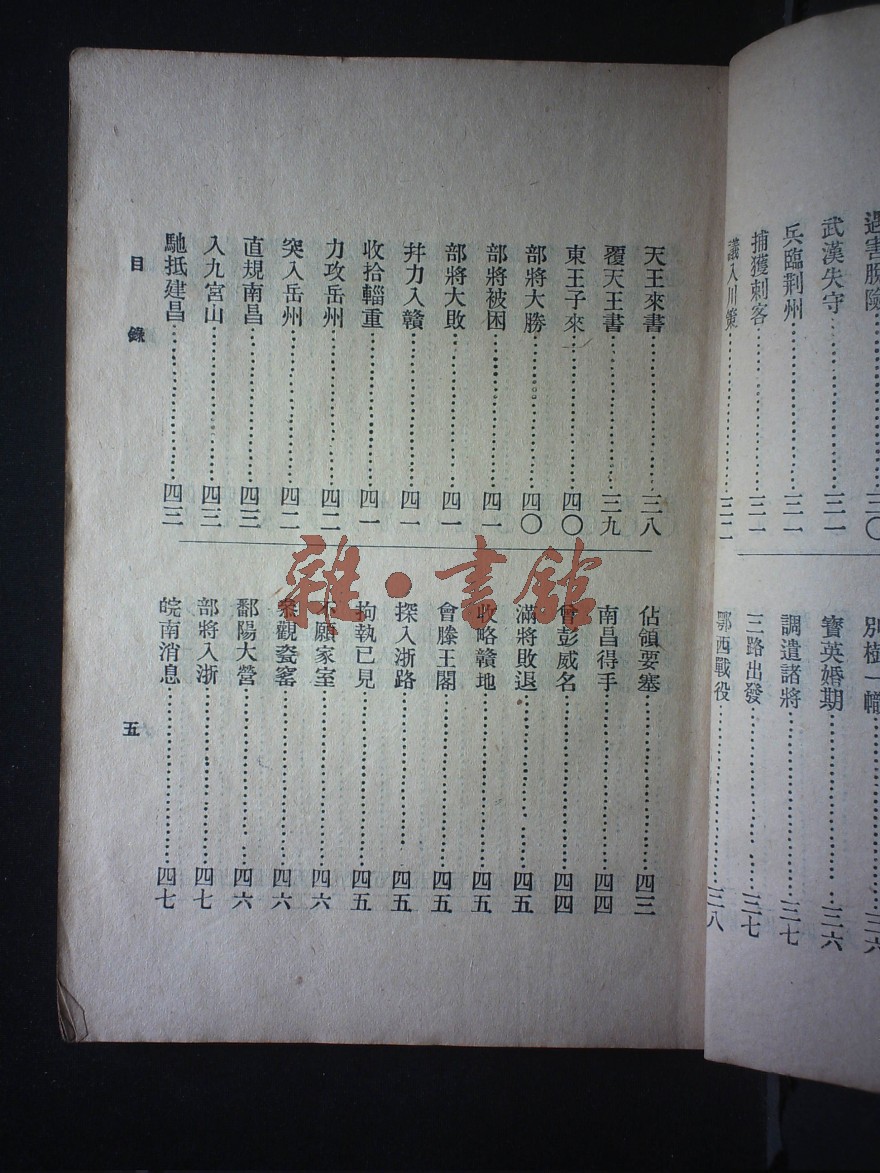 遇害脫險……三〇
武漢失守……三一
兵臨荆州……三一
捕獲刺客……三一
議入川策……三二
別樹一幟……三六
寶英婚期……三六
調遣諸將……三七
三路出發……三七
鄂西戰役……三八
天王來書……三八
覆天王書……三九
東王子來……四〇
部將大勝……四〇
部將被困……四一
部將大敗……四一
幷力入贛……四一
收拾輜重……四一
力攻岳州……四二
突入岳州……四二
直規南昌……四三
入九宮山……四三
馳抵建昌……四三
佔領要塞……四三
南昌得手……四四
曾彭威名……四四
滿將敗退……四五
收略贛地……四五
會滕王閣……四五
探入浙路……四五
拘執已見……四五
不願家室……四六
參觀瓷窰……四六
鄱陽大營……四六
部將入浙……四七
皖南消息……四七
目錄
五
雜·書館